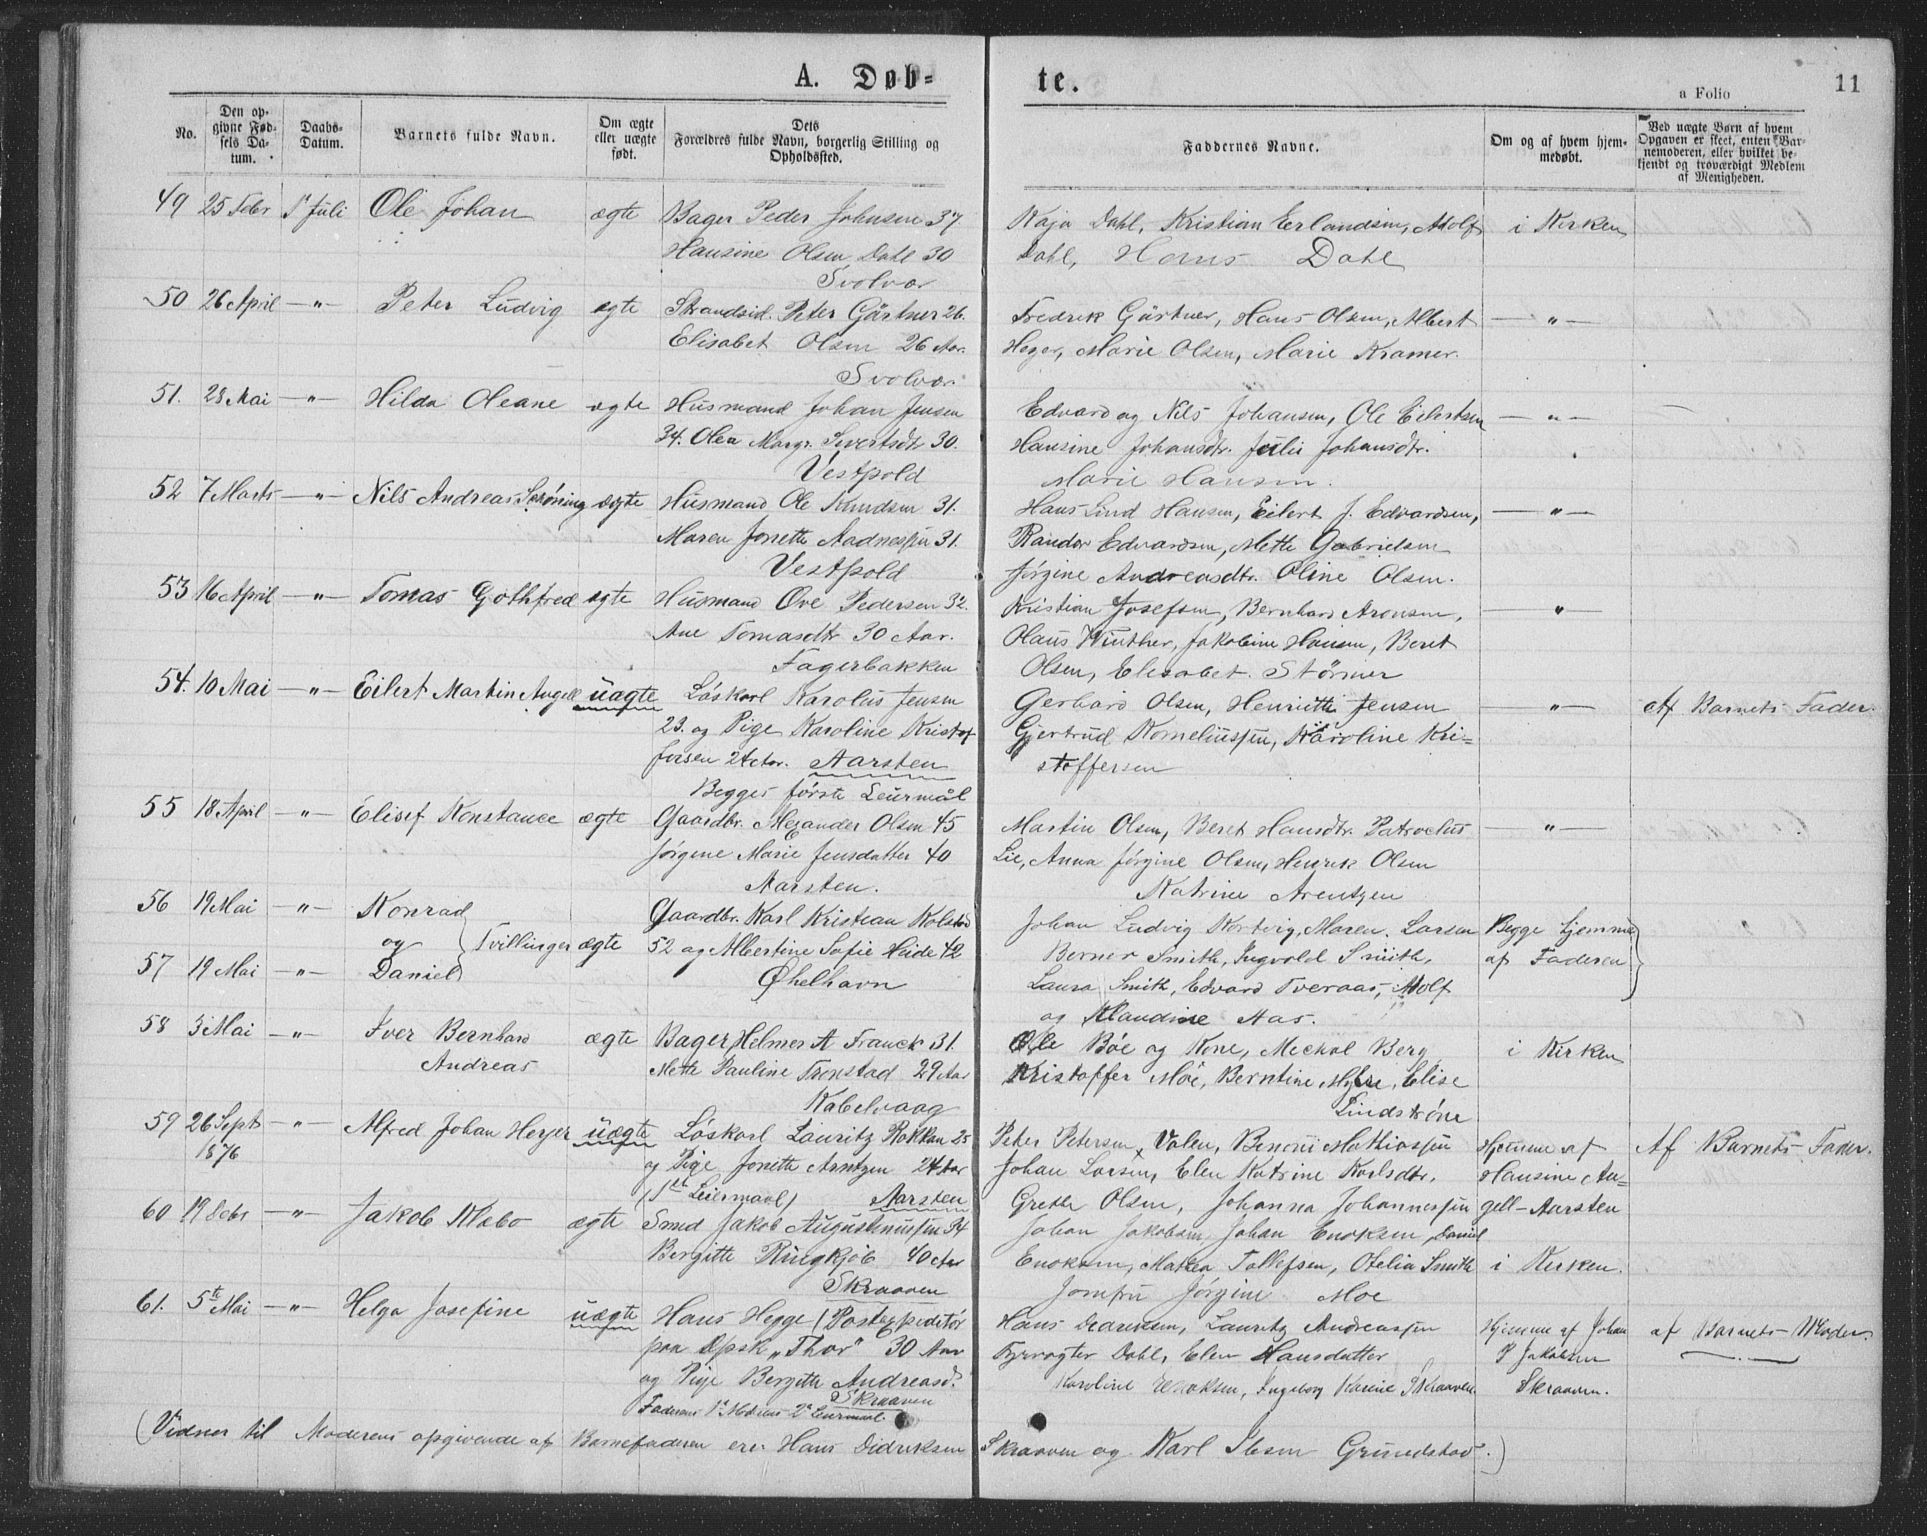 A. Døb-
te.
a Folio
11
No.
Den op-
givne Fød-
sels Da-
tum.
Daabs-
Datum.
Barnets fulde Navn.
Om ægte
eller uægte
født.
Dets
Forældres fulde Navn, borgerlig Stilling og
Opholdssted.
Faddernes Navne.
Om og af hvem hjem-
medøbt.
Ved uægte Børn af hvem
Opgaven er skeet, enten Bar-
nemoderen, eller hvilket be-
kjendt og troværdigt Medlem
af Menigheden.
49 25 Febr 1ste Juli Ole Johan ægte Bager Peder Johnsen 37.
Hansine Olsen Dahl 30
Svolvær
Kaja Dahl, Kristian Erlandsen, Adolf
Dahl, Hans Dahl
i Kirken
50 26 April —"— Peter Ludvig ægte Strandsid. Peter Gärtner 26.
Elisabet Olsen 26 Aar.
Svolvær
Fredrik Gärtner, Hans Olsen, Albert
Heger, Marie Olsen, Marie Kramer.
—"—
51. 28 Mai —"— Hilda Oleane ægte Husmand Johan Jensen
34. Olea Margr. Sivertsdtr 30.
Vestpold
Edvard og Nils Johansen, Ole Eilertsen
Hansine Johansdtr. Julie Johansdtr.
Marie Hansen.
—"—
52 7 Marts —"— Nils Andreas Schöning ægte Husmand Ole Knudsen 31.
Maren Jonette Aadnessen 31.
Vestpold
Hans Lind Hansen, Eilert J. Edvardsen,
Randor Edvardsen, Mette Gabrielsen
Jörgine Andreasdtr. Oline Olsen.
—"—
53 16 April —"— Tomas Gothfred ægte Husmand Ove Pedersen 32.
Ane Tomasdtr 30 Aar.
Fagerbakken
Kristian Josefsen, Bernhard Aronsen,
Olaus Winther, Jakobine Hansen, Beret
Olsen, Elisabet Störmer
—"—
54. 10 Mai —"— Eilert Martin Angell uægte Löskarl Karolus Jensen
23. og Pige Karoline Kristof
fersen 24 Aar. Aarsten
Begges förste Leiermål
Gerhard Olsen, Henriette Jensen
Gjertrud Korneliussen, Karoline Kri-
stoffersen
—"—
Af Barnets Fader.
55 18 April —"— Elisef Konstance ægte Gaardbr. Alexander Olsen 45
Jörgine Marie Jensdatter 40
Aarsten.
Martin Olsen, Beret Hansdtr. Patroclus
Lie, Anna Jörgine Olsen, Henrik Olsen
Katrine Arentzen
—"—
56 19 Mai —"— Konrad
og Tvillinger ægte
57 19 Mai —"— Daniel
Gaardbr. Karl Kristian Kolstad
52 og Albertine Sofie Heide 42
Øhelhavn
Johan Ludvig Kortvig, Maren Larsen
Berner Smith, Ingvold Smith,
Laura Smith, Edvard Tveraas, Adolf
og Klaudine Aas.
Begge hjemme
af Faderen
58 5 Mai —"— Iver Bernhard
Andreas
ægte Bager Helmer A Franck 31.
Mette Pauline Tronstad 29 Aar
Kabelvaag
Ole Böe og Kone, Meckal Berg
Kristoffer Moe, Berntine Myhre, Elise
Lindströme
i Kirken
59 26 Sept
1876
—"— Alfred Johan Heyer uægte Löskarl Lauritz Rokkan 25
og Pige Jonette Arntzen 24 Aar
(1ste Leiermaal) Aarsten
Peter Petersen Valen, Benoni Mathiassen
Johan Larsen, Elen Katrine Karlsdtr.
Grethe Olsen, Johanna Johannessen
Hjemme af
Hansine An-
gell-Aarsten
Af Barnets Fader.
60 19 Febr —"— Jakob Klæbo ægte Smed Jakob Augustinussen 34
Bergitte Ringkjöb 40 Aar
Skraaven
Johan Jakobsen, Johan Enoksen, Daniel
Enoksen, Mathea Tollefsen, Otelia Smith
Jomfru Jörgine Moe
i Kirken.
61. 5te Mai —"— Helga Josefine uægte Hans Hegge (Postexpeditör
paa Dpsk „Thor" 30 Aar
og Pige Bergitte Andreasd.
Skraaven
Faderens 1ste Moderens 2det Leiermaal.
Hans Didriksen, Lauritz Andreassen
Fyrvogter Dahl, Elen Hansdatter
Karoline Enoksen, Ingeborg Karine Skraaven
Hjemme af Johan
P Jakobsen
Skraaven.
af Barnets Moder.
(Vidner til Moderens opgivende af Barnefaderen ere: Hans Didriksen Skraaven og Karl Ibsen Grundstad.)